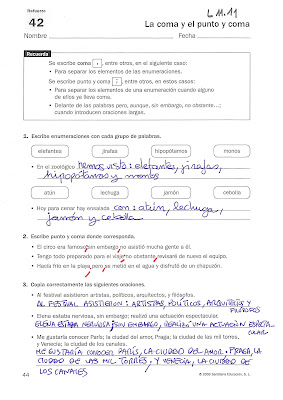 Refuerzo
L.M.11
42
La coma y el punto y coma
Nombre
Fecha
Recuerda
Se escribe coma , entre otros, en el siguiente caso:
• Para separar los elementos de las enumeraciones.
Se escribe punto y coma ; entre otros, en estos casos:
• Para separar los elementos de una enumeración cuando alguno
de ellos ya lleva coma.
• Delante de las palabras pero, aunque, sin embargo, no obstante...;
cuando introducen oraciones largas.
1. Escribe enumeraciones con cada grupo de palabras.
elefantes jirafas hipopótamos monos
• En el zoológico hemos visto: elefantes, jirafas,
hipopótamos y monos
atún lechuga jamón cebolla
• Hoy para cenar hay ensalada con: atún, lechuga,
jamón y cebolla
2. Escribe punto y coma donde corresponda.
• El circo era famoso; sin embargo no asistió mucha gente a él.
• Tengo todo preparado para el viaje; no obstante, revisaré de nuevo el equipo.
• Hacía frío en la playa; pero se metió en el agua y disfrutó de un chapuzón.
3. Copia correctamente las siguientes oraciones.
• Al festival asistieron artistas, políticos, arquitectos, y filósofos.
AL FESTIVAL ASISTIERON: ARTISTAS, POLÍTICOS, ARQUITECTOS Y
FILÓSOFOS
• Elena estaba nerviosa, sin embargo; realizó una actuación espectacular.
ELENA ESTABA NERVIOSA; SIN EMBARGO, REALIZÓ UNA ACTUACIÓN ESPECTA
CULAR
• Me gustaría conocer París; la ciudad del amor, Praga; la ciudad de las mil torres,
y Venecia; la ciudad de los canales.
ME GUSTARÍA CONOCER PARÍS, LA CIUDAD DEL AMOR; PRAGA, LA
CIUDAD DE LAS MIL TORRES; Y VENECIA, LA CIUDAD DE
LOS CANALES
44
© 2009 Santillana Educación, S. L.